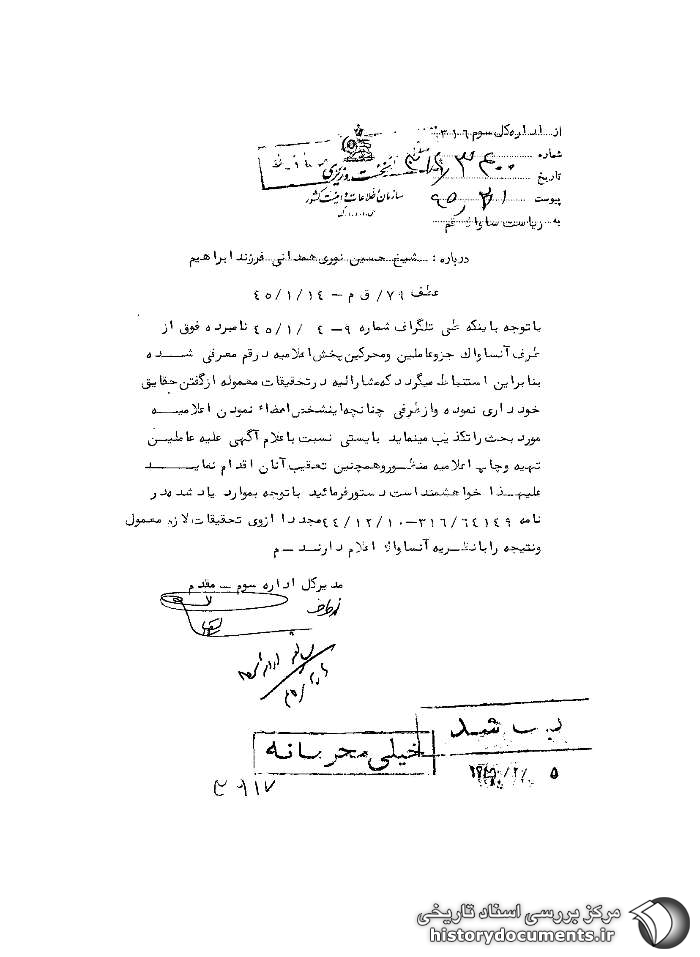 از اداره کل سوم ۳۱۶
شماره
تاریخ
پیوست
به ریاست ساواک قم
نخست وزیری
سازمان اطلاعات و امنیت کشور
درباره : شیخ حسین نوری همدانی فرزند ابراهیم
عطف ۷۹/ ق م – ۴۵/۱/۱۴
با توجه باینکه طی تلگراف شماره ۹–۴۵/۱/۲ نامبرده فوق از
طرف آنساواک جزو عاملین و محرکین پخش اعلامیه در قم معرفی شده
بنابراین استنباط میگردد که مشارالیه در تحقیقات معموله از گفتن حقایق
خودداری نموده و از طرفی چنانچه اینشخص امضاء نمودن اعلامیه
مورد بحث را تکذیب مینماید بایستی نسبت باعلام آگهی علیه عاملین
تهیه و چاپ اعلامیه منظور و همچنین تعقیب آنان اقدام نماید
علیهذا خواهشمند است دستور فرمائید با توجه بموارد یاد شده در
نامه ۳۱۶/۶۴۱۴۹–۴۴/۱۲/۱۰ مجددا از وی تحقیقات لازم معمول
و نتیجه را با نظریه آنساواک اعلام دارند – م
مدیرکل اداره سوم – مقدم
خیلی محرمانه
۵
مرکز بررسی اسناد تاریخی
historydocuments.ir